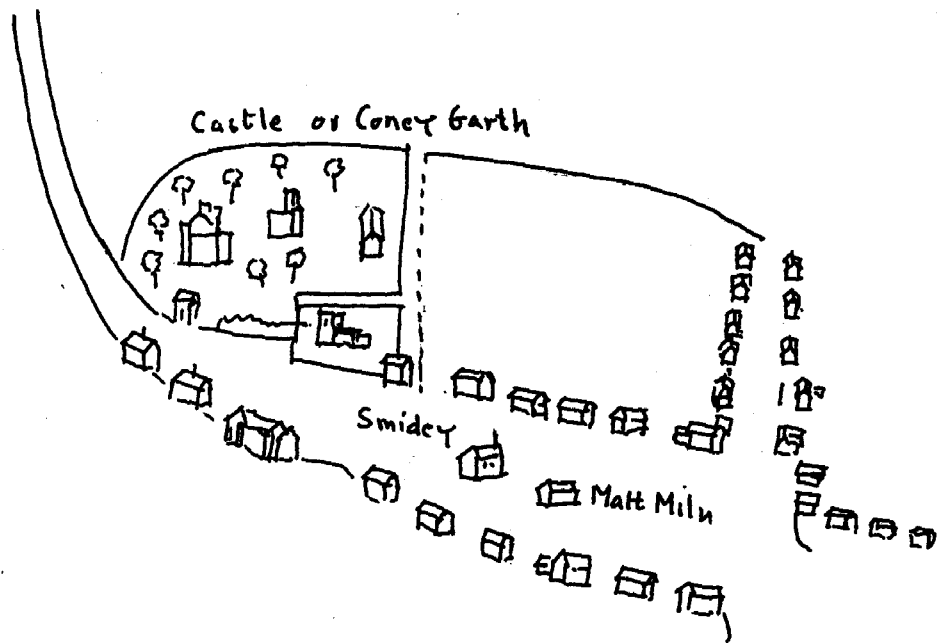 Castle or Coney Garth
Smidey
Matt Miln